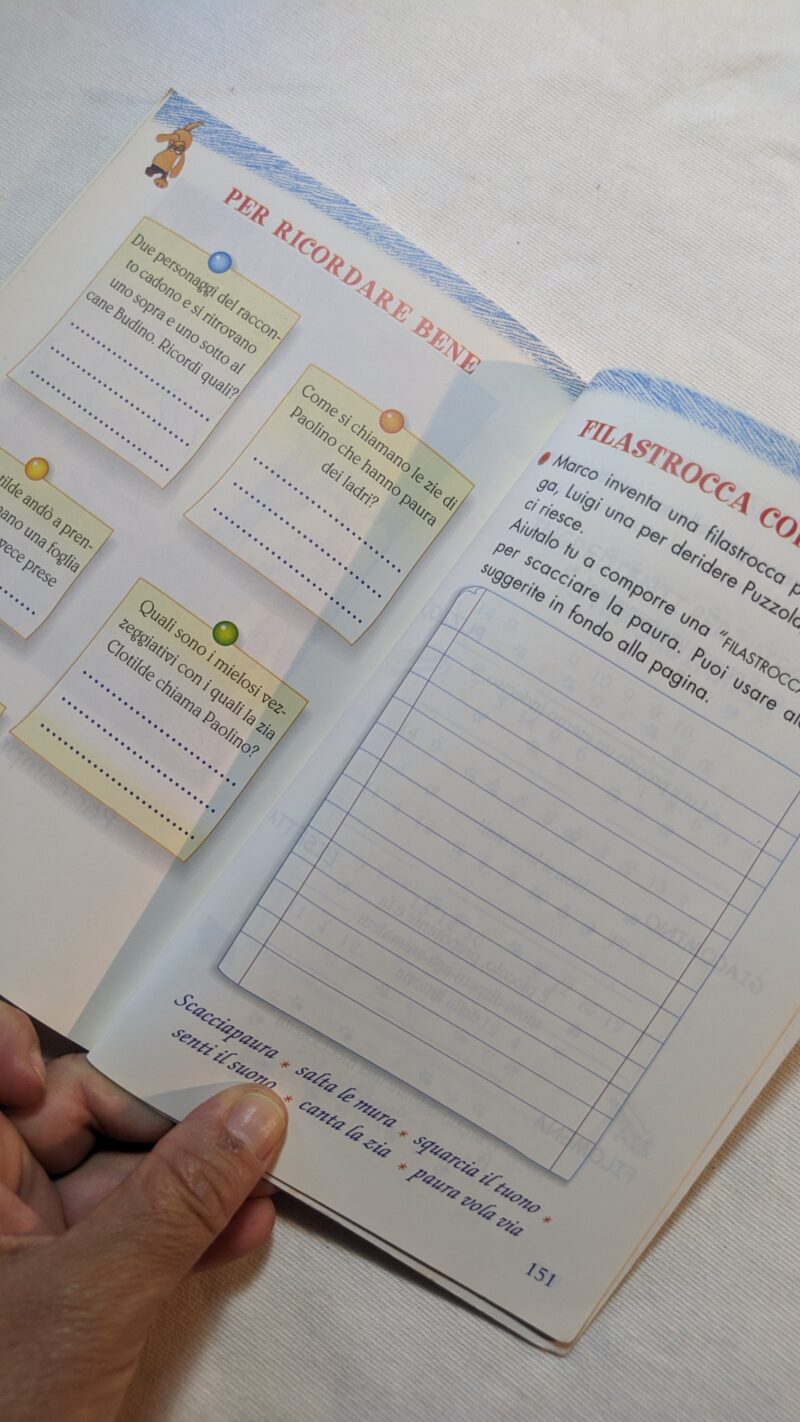 PER RICORDARE BENE
Due personaggi del raccon-
to cadono e si ritrovano
uno sopra e uno sotto al
cane Budino. Ricordi quali?
Come si chiamano le zie di
Paolino che hanno paura
dei ladri?
andò a pren-
una foglia
prese
Quali sono i mielosi vez-
zeggiativi con i quali la zia
Clotilde chiama Paolino?
FILASTROCCA
Marco inventa una filastrocca
ga, Luigi una per deridere
ci riesce.
Aiutalo tu a comporre una "FILASTROCCA
per scacciare la paura. Puoi usare
suggerite in fondo alla pagina.
Scacciapaura * salta le mura * squarcia il tuono *
senti il suono * canta la zia * paura vola via
151